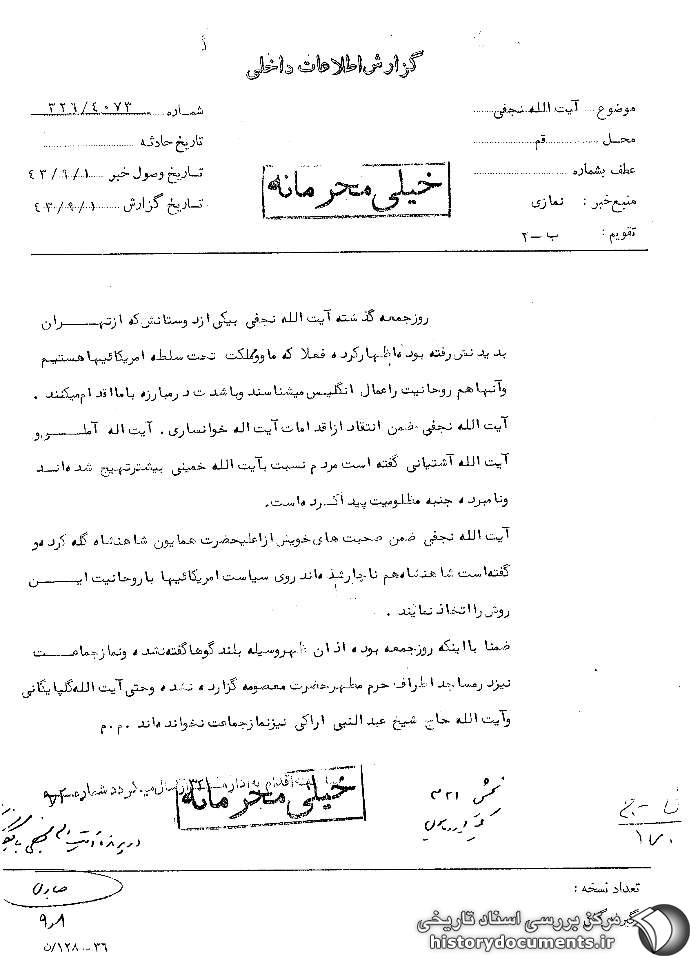 گزارش اطلاعات داخلی
موضوع آیت الله نجفی
شماره ۳۲۶/۴۰۷۳
محل قم
تاریخ حادثه
عطف بشماره
تاریخ وصول خبر ۴۳/۹/۱
منبع خبر : نمازی
تاریخ گزارش ۴۳/۹/۱
تقویم : ب-۲
خیلی محرمانه
روز جمعه گذشته آیت الله نجفی بیکی از دوستانش که از تهران
بدیدنش رفته بوده اظهار کرده فعلا که ما و مملکت تحت سلطه امریکائیها هستیم
و آنها هم روحانیت را عمال انگلیس میشناسند و باشدت در مبارزه با ما اقدام میکنند .
آیت الله نجفی ضمن انتقاد از اقدامات آیت اله خوانساری . آیت اله آملی و
آیت الله آشتیانی گفته است مردم نسبت بآیت الله خمینی بیشتر تهیج شده اند
و نامبرده جنبه مظلومیت پیدا کرده است.
آیت الله نجفی ضمن صحبت های خویش از اعلیحضرت همایون شاهنشاه گله کرده و
گفته است شاهنشاه هم ناچار شده اند روی سیاست امریکائیها با روحانیت این
روش را اتخاذ نمایند .
ضمنا با اینکه روز جمعه بوده اذان ظهر وسیله بلندگوها گفته نشده و نماز جماعت
نیز در مساجد اطراف حرم مطهر حضرت معصومه گزارده نشده و حتی آیت الله گلپایگانی
و آیت الله حاج شیخ عبدالنبی اراکی نیز نماز جماعت نخوانده اند .م.م
جهت اقدام به اداره ارسال میگردد شماره
خیلی محرمانه
بخش ۳۲۱
در پرونده آیت اله نجفی
تعداد نسخه :
صابری
۹/۸
۳۶-۱۲۸۰/ن
مرکز بررسی اسناد تاریخی
historydocuments.ir